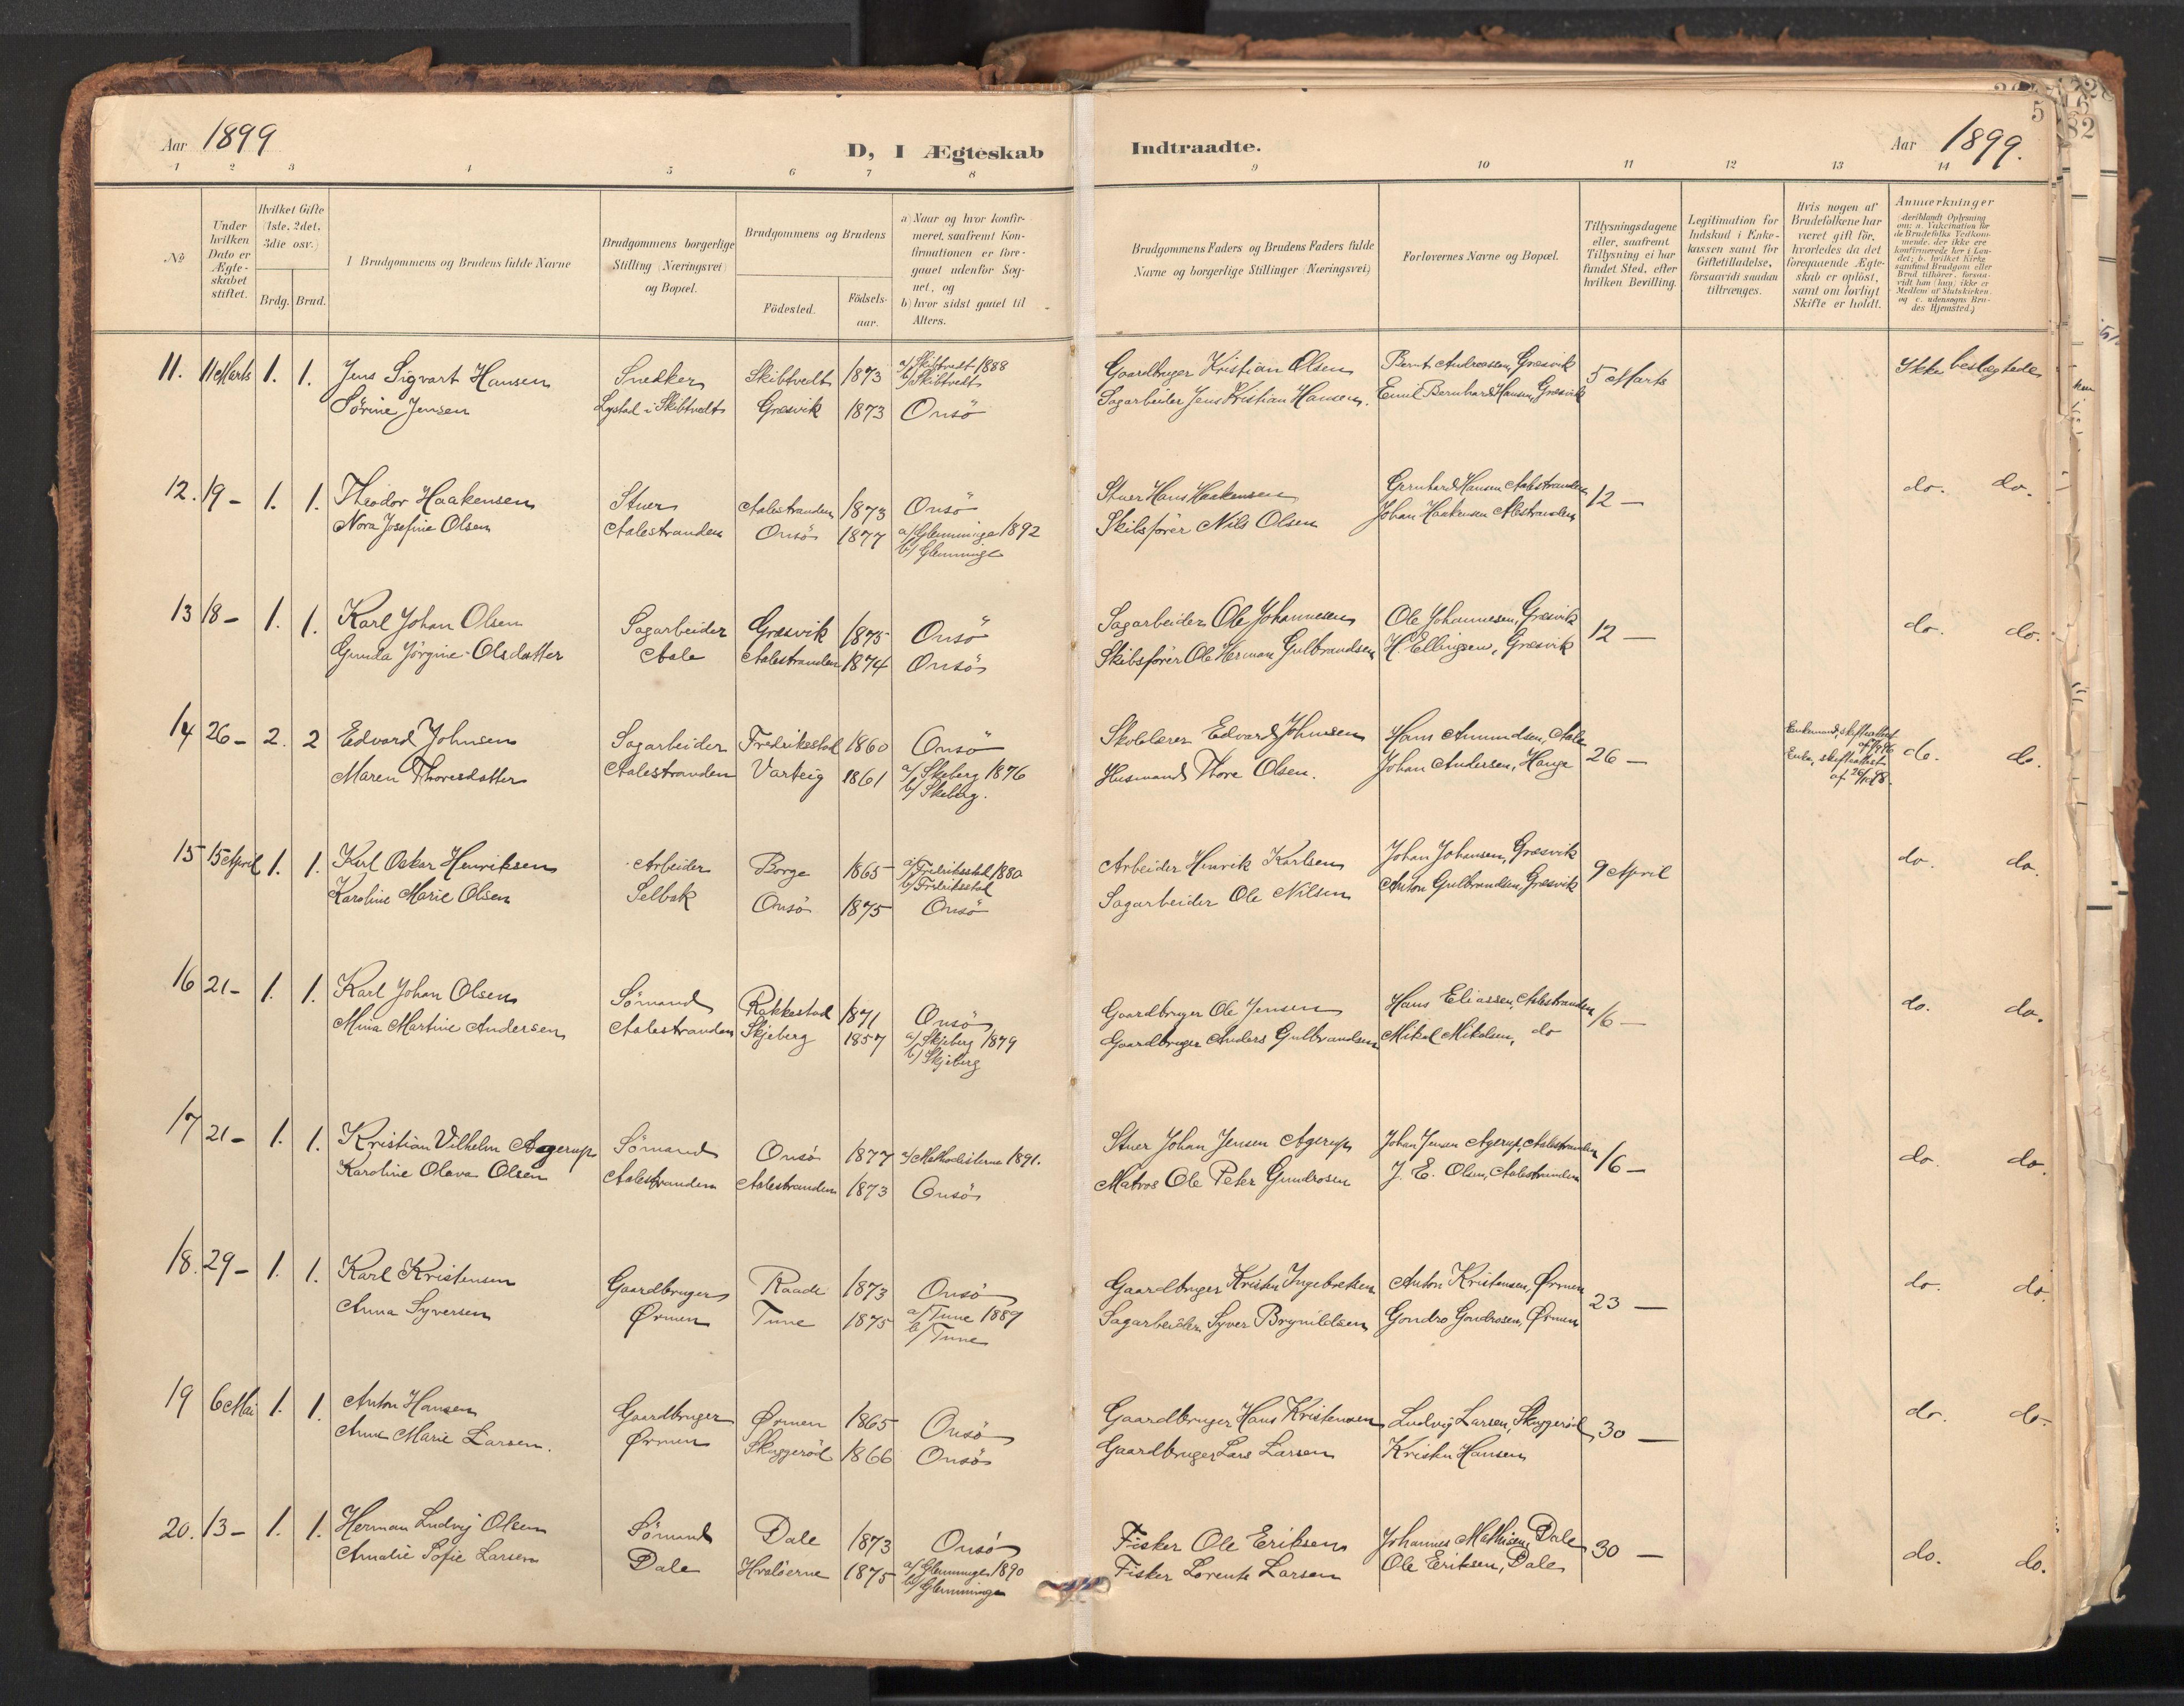 Aar 1899
D, I Ægteskab Indtraadte.
Aar 1899.
5
1 2 3 4 5 6 7 8 9 10 11 12 13 14
No
Under hvilken Dato er Ægteskabet stiftet.
Hvilket Gifte (1ste, 2det, 3die osv.)
Brdg. Brud.
Brudgommens og Brudens fulde Navne
Brudgommens borgerlige Stilling (Næringsvei) og Bopæl.
Brudgommens og Brudens
Födested.
Födselsaar.
a) Naar og hvor konfirmeret, saafremt Konfirmationen er foregaaet udenfor Sognet, og
b) hvor sidst gaaet til Alters.
Brudgommens Faders og Brudens Faders fulde Navne og borgerlige Stillinger (Næringsvei)
Forlovernes Navne og Bopæl.
Tillysningsdagene eller, saafremt Tillysning ei har fundet Sted, efter hvilken Bevilling.
Legitimation for Indskud i Enkekassen samt for Giftetilladelse, forsaavidt saadan tiltrænges.
Hvis nogen af Brudefolkene har været gift för, hvorledes da det foregaaende Ægteskab er oplöst, samt om lovligt Skifte er holdt.
Anmærkninger
(deriblandt Oplysning om: a. Vakcination for de Brudefolks Vedkommende, der ikke ere konfirmerede her i Landet; b. hvilket Kirkesamfund Brudgom eller Brud tilhörer, forsaavidt han (hun) ikke er Medlem af Statskirken, og c. udensogns Brudes Hjemsted.)
11. 11 Marts 1. 1. Jens Sigvart Hansen Snedker Skibtvedt 1873 a/ Skibtvedt 1888 b/ Skibtvedt Gaardbruger Kristian Olsen Bernt Andreasen, Græsvik 5 Marts Ikke beslægtede
Sörine Jensen Lystad i Skibtvedt Græsvik 1873 Onsö Sagarbeider Jens Kristian Hansen. Emil Bernhard Hansen, Græsvik
12. 19 - 1. 1. Theodor Haakensen Stuer Aalestranden 1873 Onsö Stuer Hans Haakensen Hansen Aalestranden 12 - do. do.
Nora Josefine Olsen Aalestranden Onsö 1877 a/ Glemminge 1892 b/ Glemminge Skibsförer Nils Olsen Johan Haakensen Alestranden
13 18 - 1. 1. Karl Johan Olsen Sagarbeider Græsvik 1875 Onsö Sagarbeider Ole Johannesen Ole Johannesen, Græsvik 12 - do. do.
Gunda Jörgine Olsdatter Aale Aalestranden 1874 Onsö Skibsförer Ole Herman Gulbrandsen H Ellingsen, Græsvik
14 26 - 2. 2 Edvard Johnsen Sagarbeider Fredriksstad 1860 Onsö Skolelærer Edvard Johnsen Hans Amundsen, Aale 26 - Enkemand, skifteattest af do. do.
Maren Thoresdatter Aalestranden Varteig 1861 a/ Skeberg 1876 b/ Skeberg. Husmand Thore Olsen. Johan Andersen, Hauge Enke, skifteattest af
15 15 April 1. 1. Karl Oskar Henriksen Arbeider Borge 1865 a/ Fredriksstad 1880 b/ Fredriksstad Arbeider Henrik Karlsen Johan Johansen, Græsvik 9 April do. do.
Karoline Marie Olsen Selbak Onsö 1875 Onsö Sagarbeider Ole Nilsen Anton Gulbrandsen, Græsvik
16 21 - 1. 1. Karl Johan Olsen Sömand Rakkestad 1871 Onsö Gaardbruger Ole Jensen Hans Eliassen, Aalestranden 16 - do. do.
Mina Martine Andersen Aalestranden Skjeberg 1857 a/ Skjeberg 1879 b/ Skjeberg Gaardbruger Anders Gulbrandsen Mikal Mikalsen, do
17 21 - 1. 1. Kristian Vilhelm Agerup Sömand Onsö 1877 a/ Methodisterne 1891. Stuer Johan Jensen Agerup Johan Jensen Agerup, Aalestranden 16 - do. do.
Karoline Olava Olsen Aalestranden Aalestranden 1873 Onsö Matros Ole Peter Gundrosen J. E. Olsen, Aalestranden
18. 29 - 1. 1. Karl Kristensen Gaardbruger Raade 1873 Onsö Gaardbruger Kristen Ingebretsen Anton Kristensen, Ørmen 23 - do. do.
Anna Syversen Ørmen Tune 1875 a/ Tune 1889 b/ Tune Sagarbeider Syver Brynildsen Gondro Gondrosen, Ørmen
19 6 Mai 1. 1. Anton Hansen Gaardbruger Ørmen 1865 Onsö Gaardbruger Hans Kristensen Ludvig Larsen, Skuggeröd 30 - do. do.
Anne Marie Larsen. Ørmen Skuggeröd 1866 Onsö Gaardbruger Lars Larsen Kristen Hansen
20. 13 - 1. 1. Herman Ludvig Olsen Sömand Dale 1873 Onsö Fisker Ole Eriksen Johannes Mathisen, Dale 30 - do. do.
Amalie Sofie Larsen Dale Hvalöerne 1875 a/ Glemminge 1890 b/ Glemminge Fisker Lorents Larsen Ole Eriksen, Dale